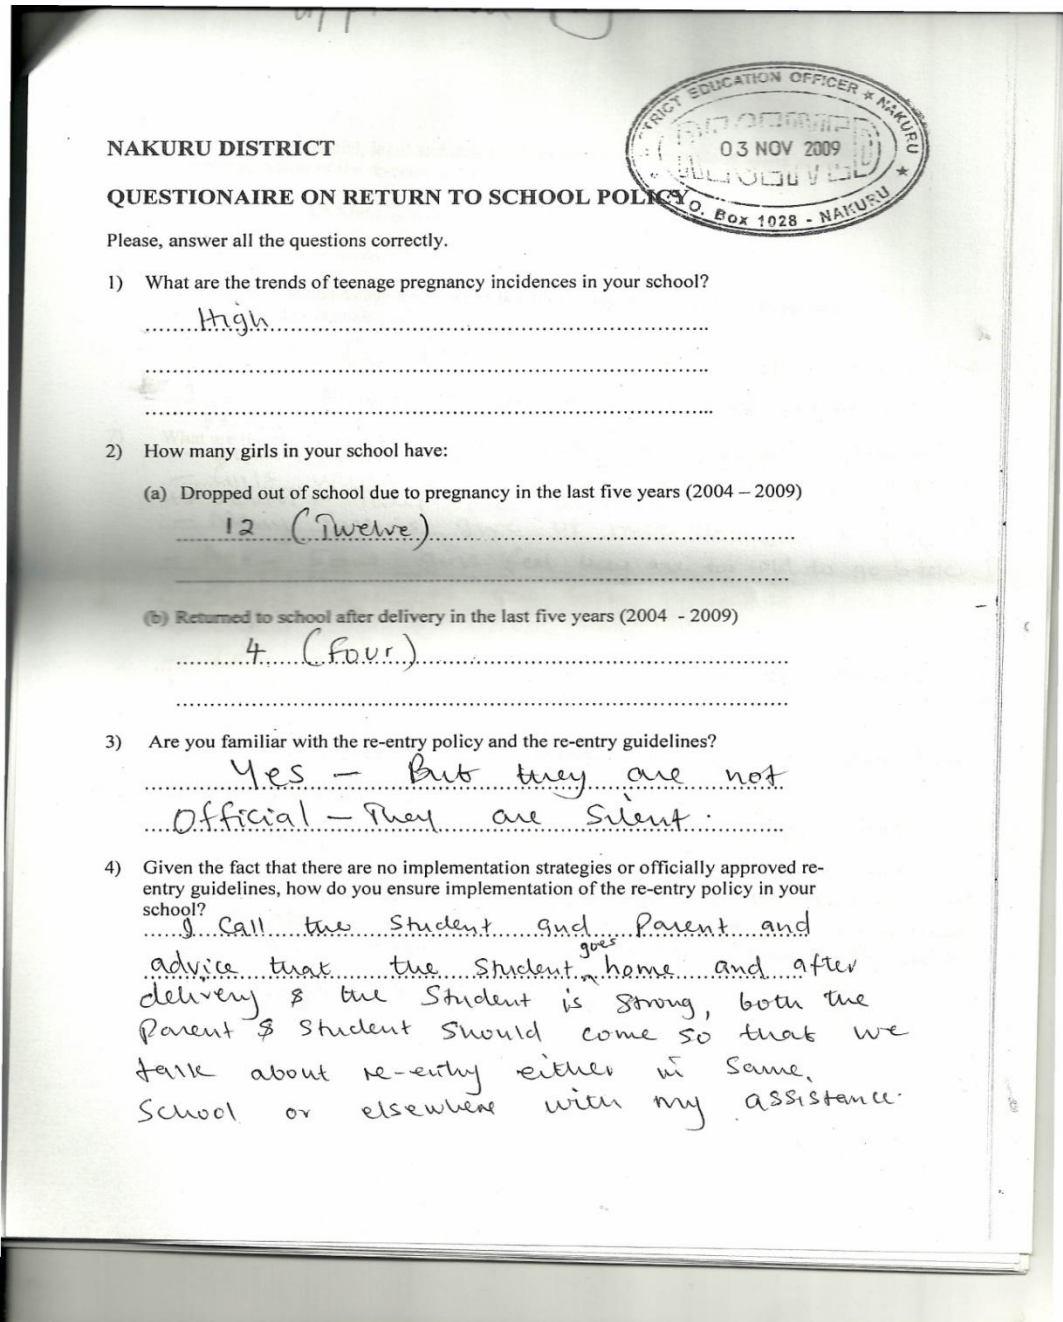 DISTRICT EDUCATION OFFICER * NAKURU *
03 NOV 2009
O. Box 1028 - NAKURU
NAKURU DISTRICT
QUESTIONAIRE ON RETURN TO SCHOOL POLICY
Please, answer all the questions correctly.
1) What are the trends of teenage pregnancy incidences in your school?
High
2) How many girls in your school have:
(a) Dropped out of school due to pregnancy in the last five years (2004 – 2009)
12 (Twelve)
(b) Returned to school after delivery in the last five years (2004 - 2009)
4 (Four)
3) Are you familiar with the re-entry policy and the re-entry guidelines?
Yes – But they are not
Official – They are Silent.
4) Given the fact that there are no implementation strategies or officially approved re-
entry guidelines, how do you ensure implementation of the re-entry policy in your
school?
I Call the Student and Parent and
advice that the Student goes home and after
delivery & the Student is strong, both the
Parent & Student should come so that we
talk about re-entry either in same
School or elsewhere with my assistance.